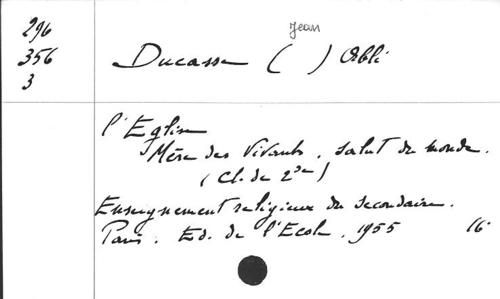 296
356
3
Jean
Ducasse ( ) Abbé
l'Eglise
Mère des Vivants. Salut du monde.
(Cl. de 2de)
Enseignement religieux du secondaire.
Paris. Ed. de l'Ecole. 1955 16°